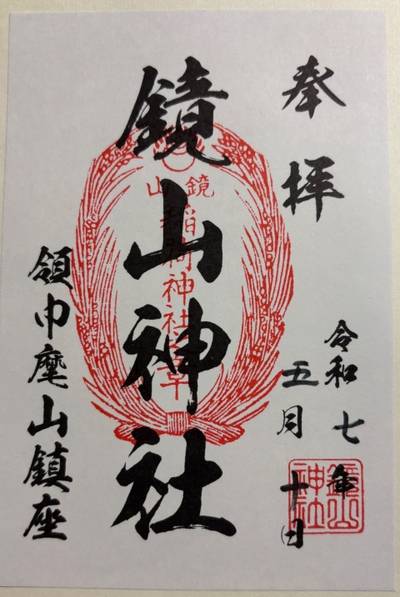 奉拝
令和七年
五月十日
鏡山神社
鏡山
稲荷神社
鏡山神社
領巾麾山鎮座